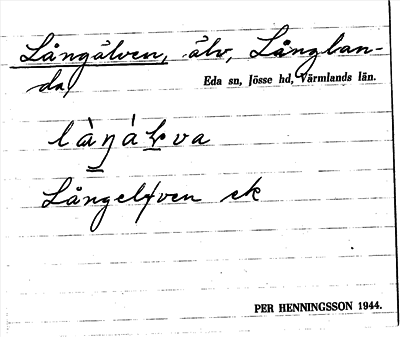 Långälven, älv, Långlan-
da,
Eda sn, Jösse hd, Värmlands län.
Långelfven ek
PER HENNINGSSON 1944.